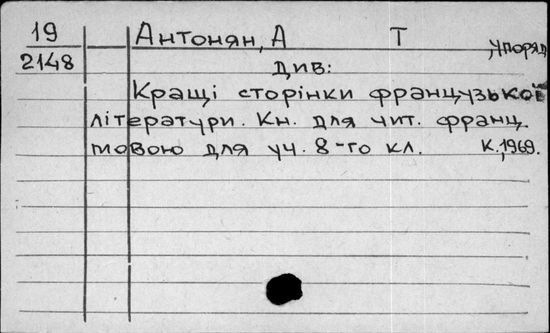 19 Антонян, А Т
2148 , упоряд
див:
Кращі сторінки французької
літератури. Кн. для чит. франц.
мовою для уч. 8-го кл. К.,1969.